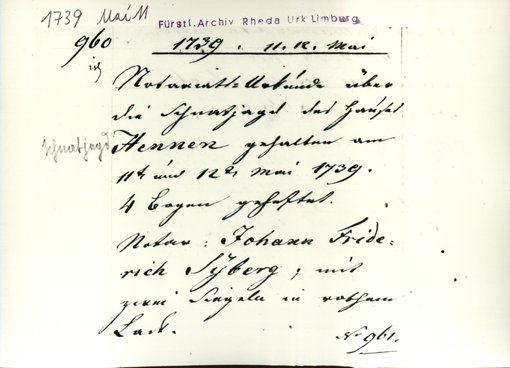 1739 Mai 11
Fürstl. Archiv Rheda Urk Limburg
960
1739. 11. 12. Mai
Notariats-Urkunde über
die Schnatjagd des Hauses
Schnatjagd
Hennen gehalten am
11t und 12t Mai 1739.
4 Bogen geheftet.
Notar: Johann Fride-
rich Sÿberg; mit
zwei Siegeln in rothem
Lack.
No 961.